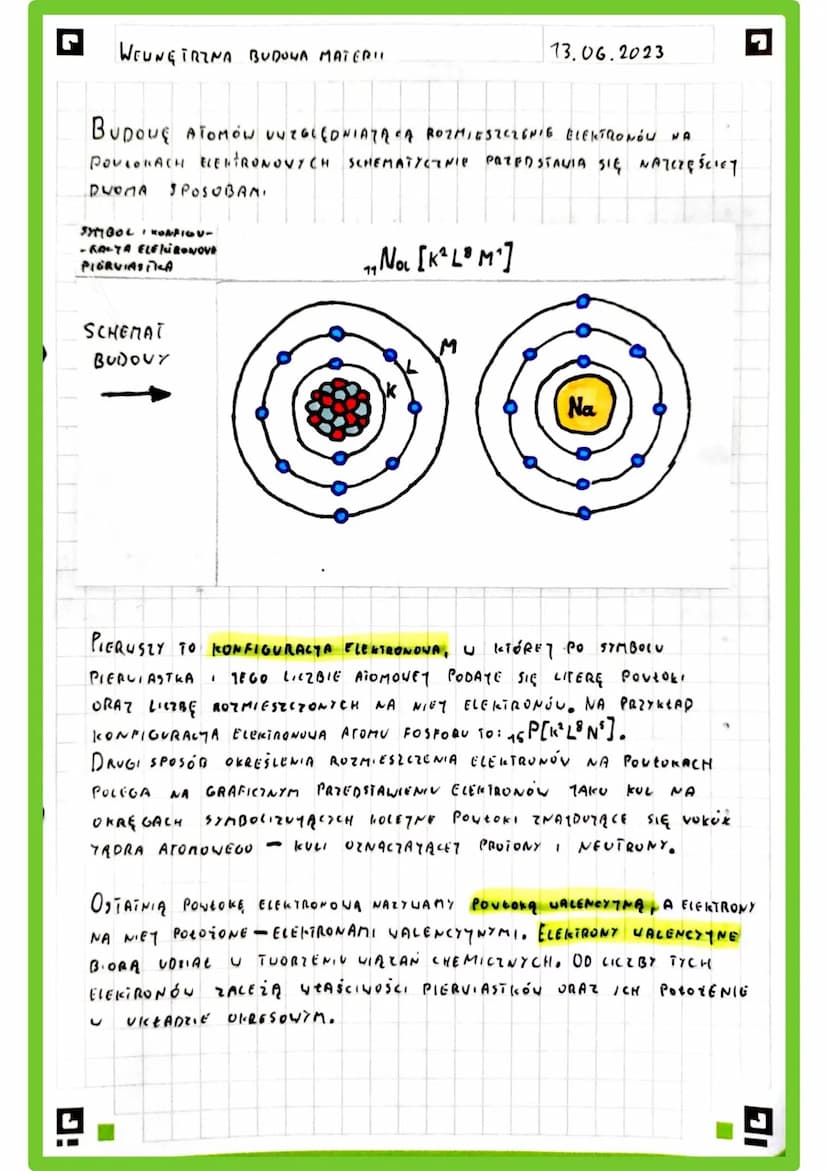 WEWNĘTRZNA BUDOWA MATERII
13.06.2023
BUDOWĘ ATOMÓW UWZGLĘDNIAJĄCĄ ROZMIESZCZENIE ELEKTRONÓW NA
POWŁOKACH ELEKTRONOWYCH SCHEMATYCZNIE PRZEDSTAWIA SIĘ NAJCZĘŚCIEJ
DWOMA SPOSOBAMI
SYMBOL I KONFIGU-
-RACJA ELEKTRONOWA
PIERWIASTKA
₁₁Na [K² L⁸ M¹]
SCHEMAT
BUDOWY
M
L
K
Na
PIERWSZY TO KONFIGURACJA ELEKTRONOWA, W KTÓREJ PO SYMBOLU
PIERWIASTKA I JEGO LICZBIE ATOMOWEJ PODAJE SIĘ LITERĘ POWŁOKI
ORAZ LICZBĘ ROZMIESZCZONYCH NA NIEJ ELEKTRONÓW. NA PRZYKŁAD
KONFIGURACJA ELEKTRONOWA ATOMU FOSFORU TO: ₁₅P[K²L⁸N⁵].
DRUGI SPOSÓB OKREŚLENIA ROZMIESZCZENIA ELEKTRONÓW NA POWŁOKACH
POLEGA NA GRAFICZNYM PRZEDSTAWIENIU ELEKTRONÓW JAKO KUL NA
OKRĘGACH SYMBOLIZUJĄCYCH KOLEJNE POWŁOKI ZNAJDUJĄCE SIĘ WOKÓŁ
JĄDRA ATOMOWEGO – KULI OZNACZAJĄCEJ PROTONY I NEUTRONY.
OSTATNIĄ POWŁOKĘ ELEKTRONOWĄ NAZYWAMY POWŁOKĄ WALENCYJNĄ, A ELEKTRONY
NA NIEJ POŁOŻONE – ELEKTRONAMI WALENCYJNYMI. ELEKTRONY WALENCYJNE
BIORĄ UDZIAŁ W TWORZENIU WIĄZAŃ CHEMICZNYCH. OD LICZBY TYCH
ELEKTRONÓW ZALEŻĄ WŁAŚCIWOŚCI PIERWIASTKÓW ORAZ ICH POŁOŻENIE
W UKŁADZIE OKRESOWYM.